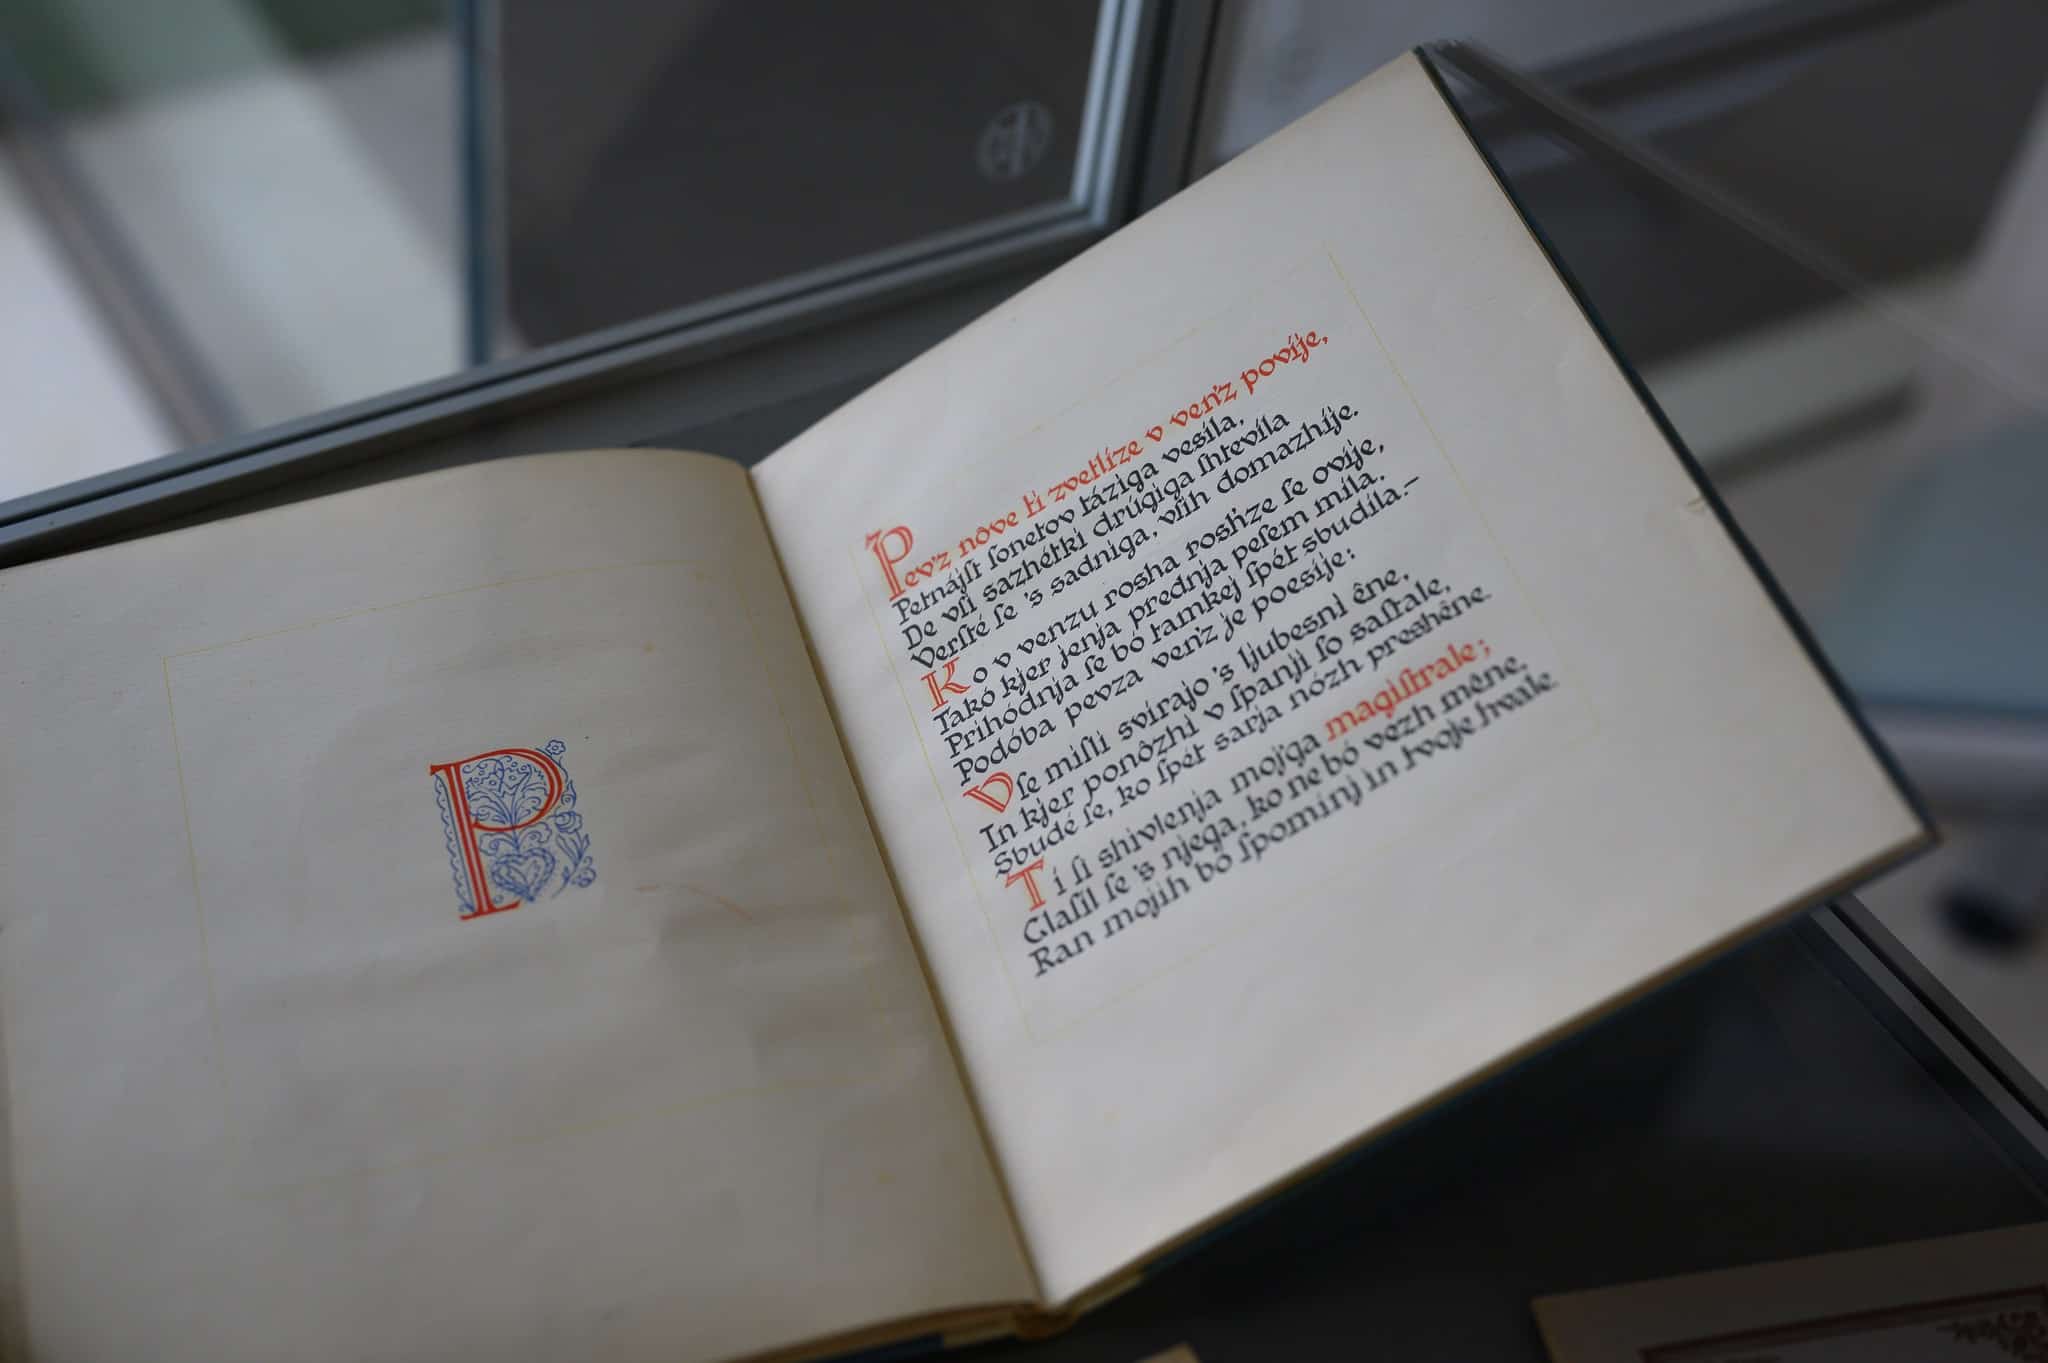 P
Pev'z nôve ti zvetlíze v ven'z povíje,
Petnájſt ſonetov táziga vesíla,
De vſi sazhétki drúgiga ſhtevíla
Verſté ſe 's sadniga, vſih domazhíje.
Ko v venzu rosha rosh'ze ſe ovíje,
Takó kjer jenja prednja peſem míla,
Prihódnja ſe bó tamkej ſpét sbudíla.–
Podóba pevza ven'z je poesíje:
Vſe miſli svirajo 's ljubesni êne,
In kjer ponôzhi v ſpanji ſo saſtale,
Sbudé ſe, ko ſpét sarja nózh preshêne.
Tí ſi shivlenja mojga magiſtrale;
Glaſil ſe 's njega, ko ne bó vezh mêne,
Ran mojih bó ſpominj in tvoje hvale.